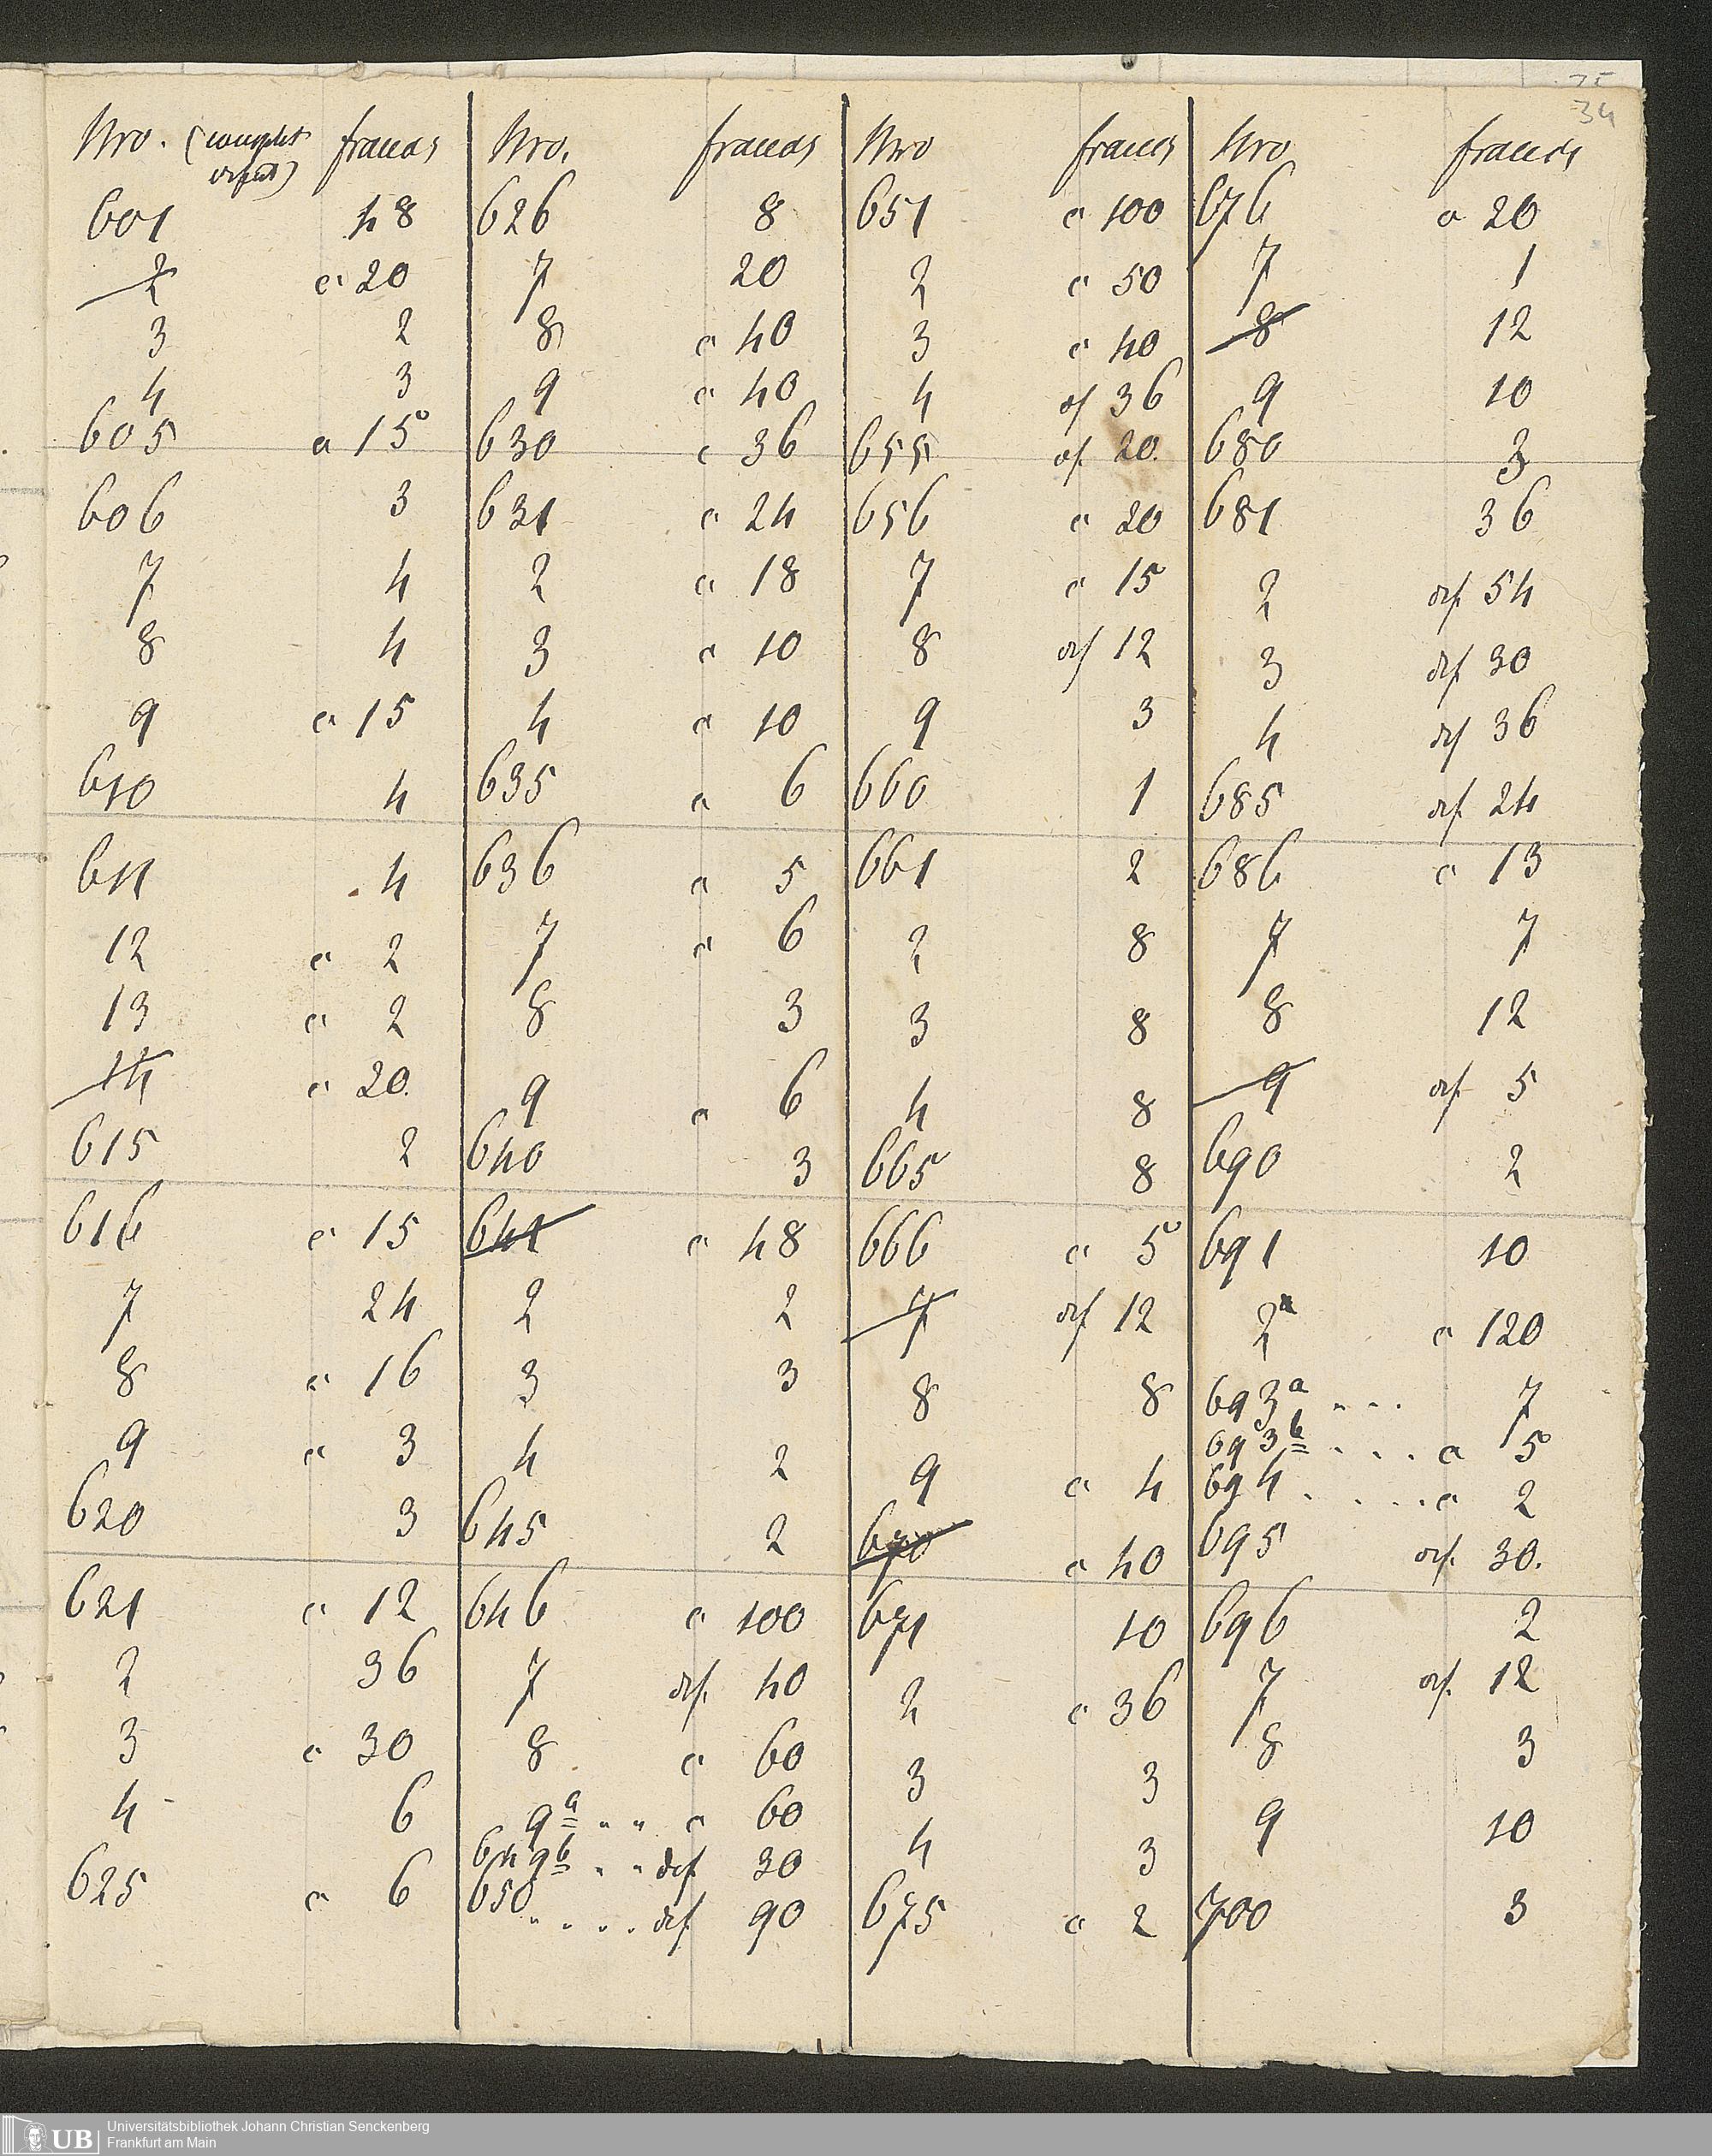 34
Nro. (complet francs
defect)
601 48
2 c 20
3 2
4 3
605 c 15
606 3
7 4
8 4
9 c 15
610 4
611 4
12 c 2
13 c 2
14 c 20.
615 2
616 c 15
7 24
8 c 16
9 c 3
620 3
621 c 12
2 36
3 c 30
4 6
625 c 6
Nro. francs
626 8
7 20
8 c 40
9 c 40
630 c 36
631 c 24
2 c 18
3 c 10
4 c 10
635 c 6
636 c 5
7 c 6
8 3
9 c 6
640 3
641 c 48
2 2
3 3
4 2
645 2
646 c 100
7 def. 40
8 c 60
9a " " c 60
649b " " def 30
650 " . . . def 90
Nro francs
651 c 100
2 c 50
3 c 40
4 df 36
655 df. 20.
656 c 20
7 c 15
8 def 12
9 3
660 1
661 2
2 8
3 8
4 8
665 8
666 c 5
7 def 12
8 8
9 c 4
670 c 40
671 10
2 c 36
3 3
4 3
675 c 2
Nro francs
676 c 20
7 1
8 12
9 10
680 3
681 36
2 def. 54
3 def 30
4 def 36
685 def. 24
686 c 13
7 7
8 12
9 def. 5
690 2
691 10
2a c 120
693a . . . 7
693b . . . c 5
694 . . . . c 2
695 def. 30.
696 2
7 def. 12
8 3
9 10
700 3
UB Universitätsbibliothek Johann Christian Senckenberg
Frankfurt am Main